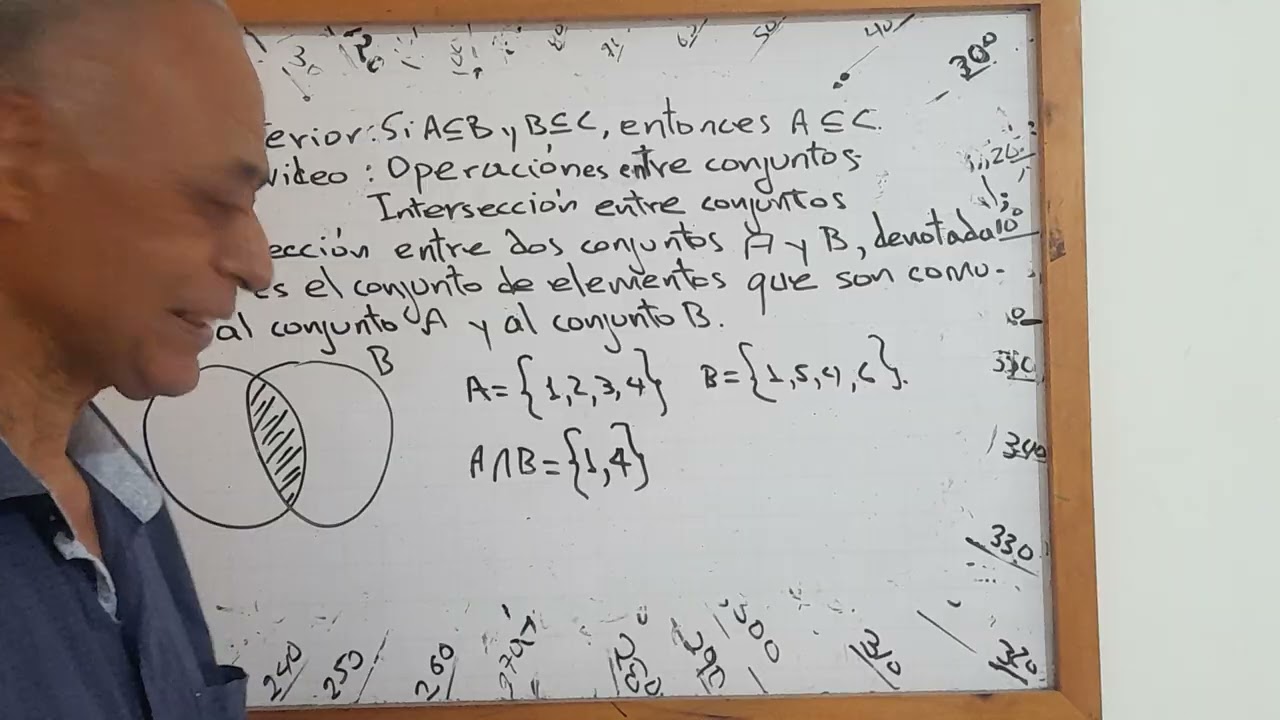 30 40 50 30°
erior: Si A⊆B y B⊆C, entonces A⊆C.
video: Operaciones entre conjuntos
Intersección entre conjuntos
ección entre dos conjuntos A y B, denotada 10°
es el conjunto de elementos que son comu-
al conjunto A y al conjunto B.
B A={1,2,3,4} B={1,5,4,6}.
A∩B={1,4}
340
330
240 250 260 270 300